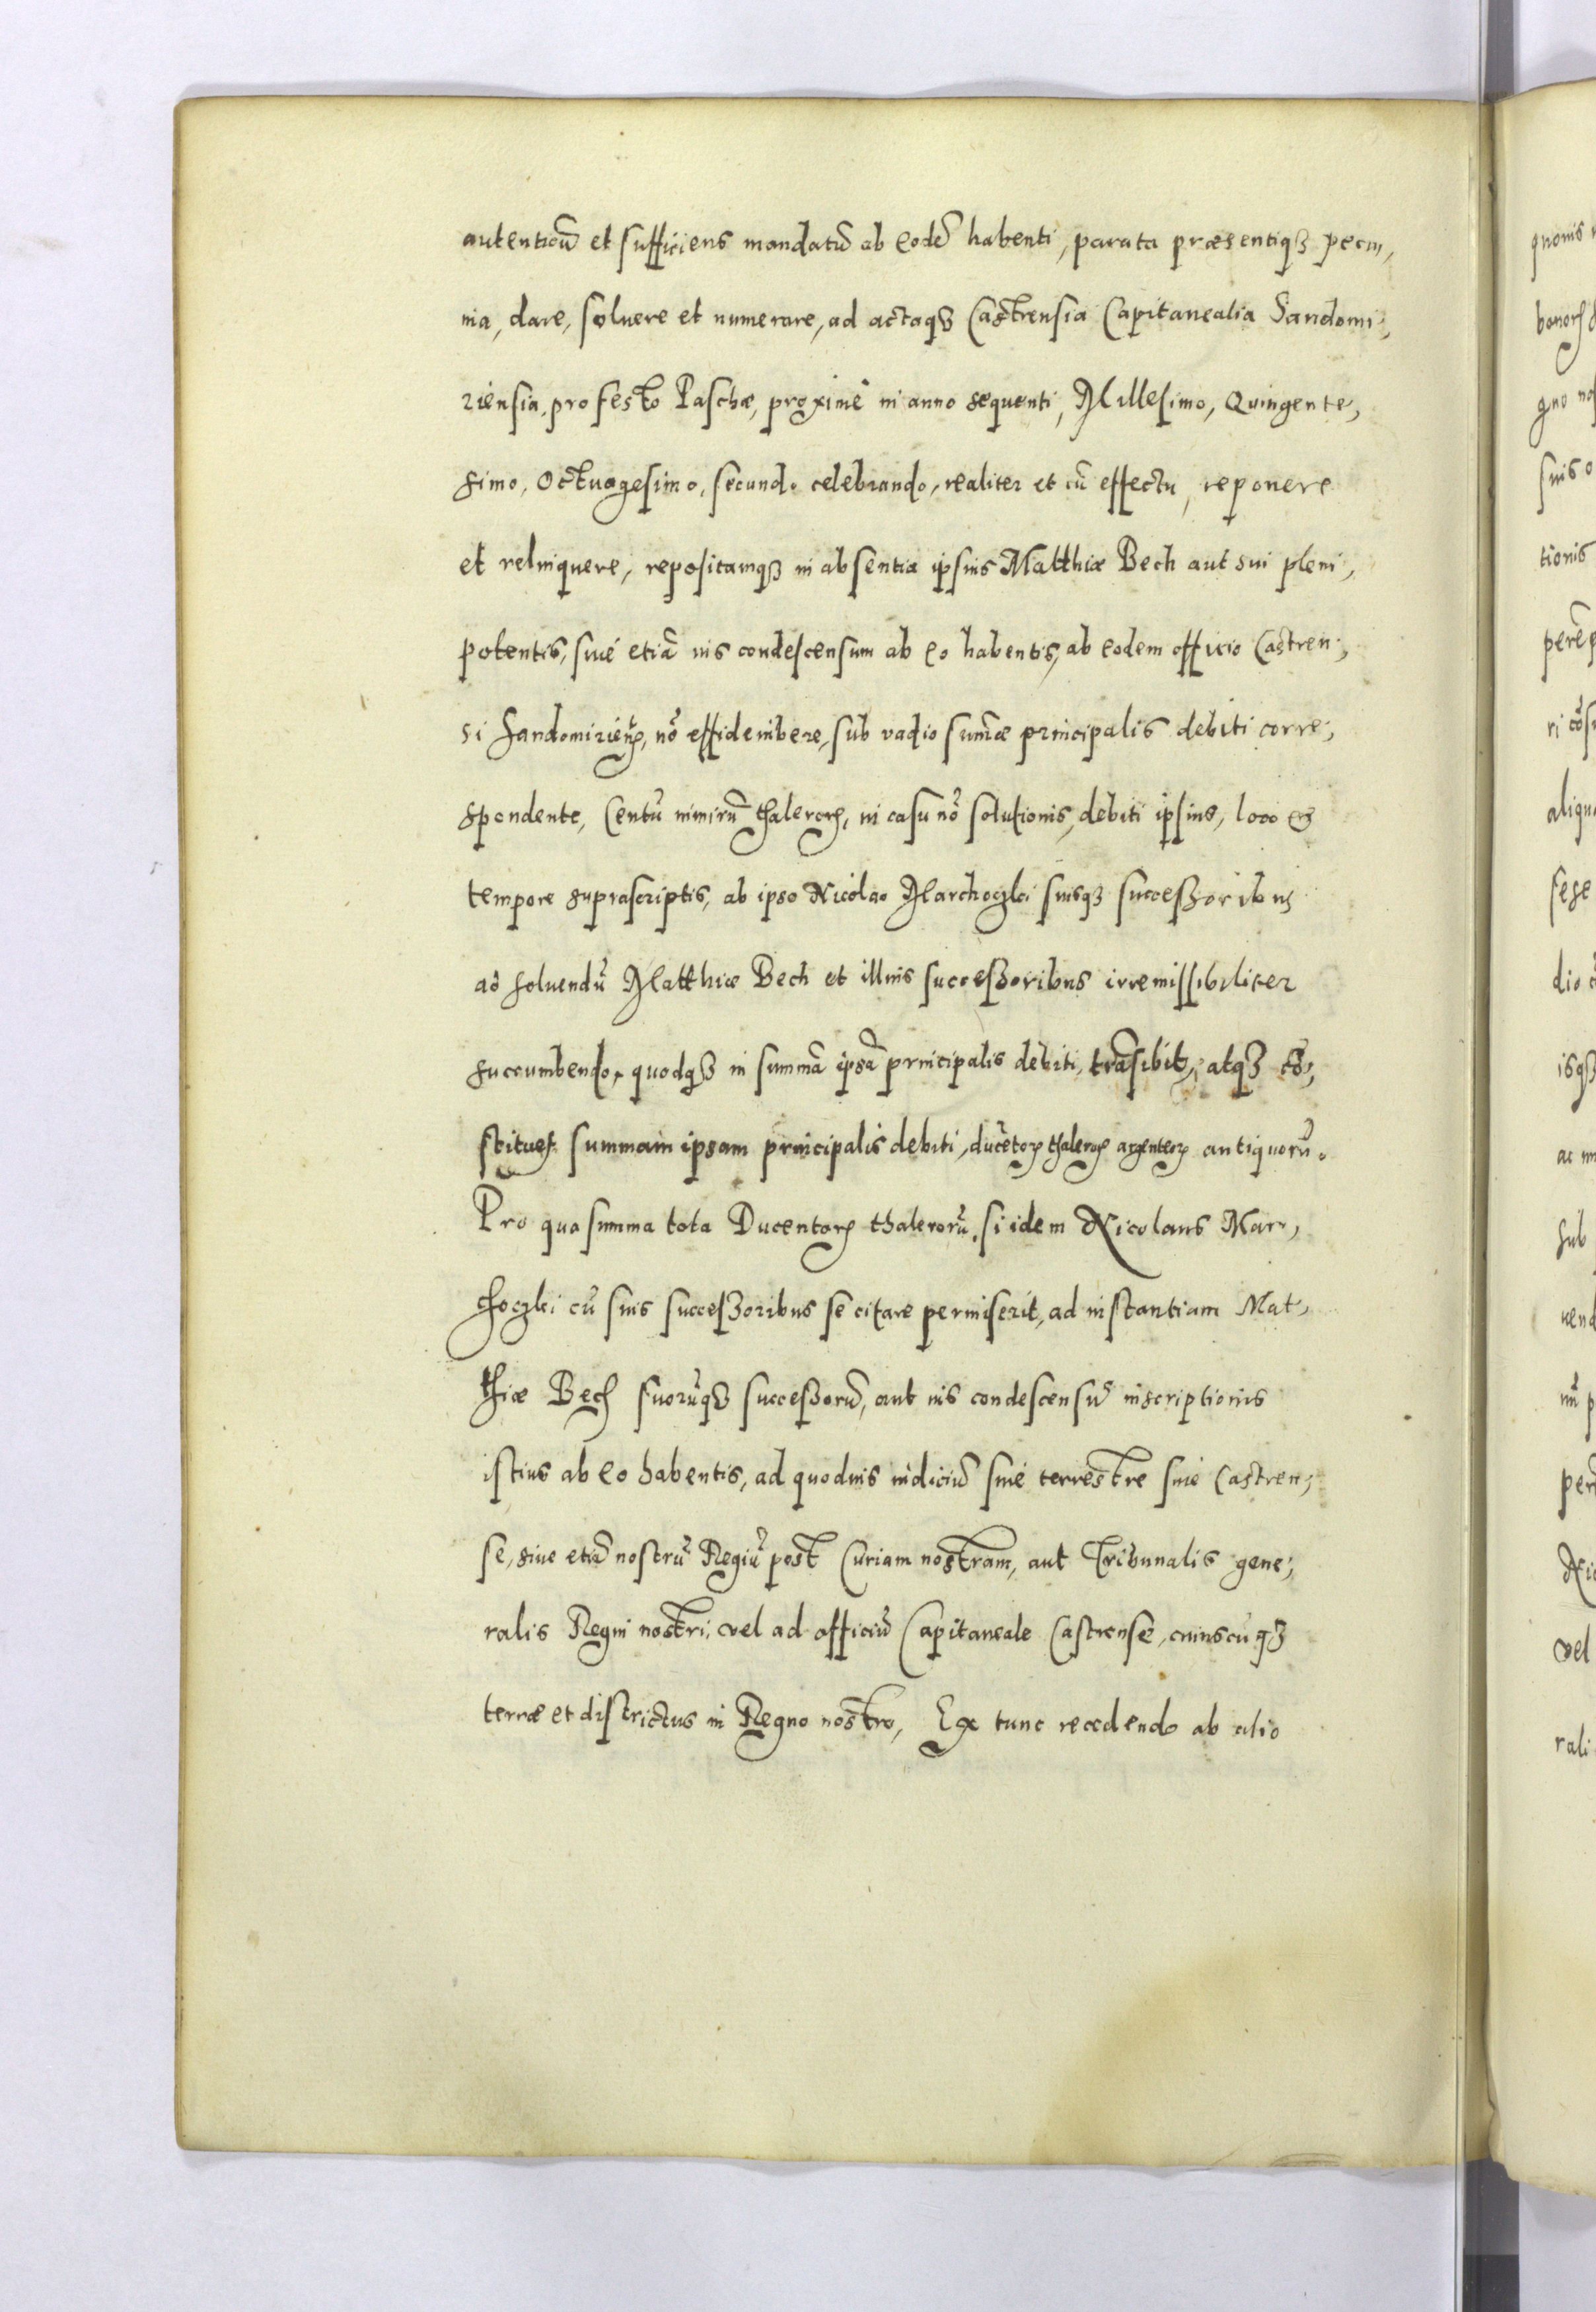 autenticū et sufficiens mandatū ab eodē habenti, parata præsentiqȝ pecu,
nia, dare, soluere et numerare, ad actaqȝ Castrensia Capitanealia Sandomi,
riensia, pro festo Paschæ, proximè in anno sequenti, Millesimo, Quingente,
simo, Octuagesimo, secundo celebrando, realiter et cū effectu, reponere
et relinquere, repositamqȝ in absentia ipsius Matthiæ Bech aut sui pleni,
potentis, siue etiā ius condescensum ab eo habentis, ab eodem officio Castren,
si Sandomirieñ, nō leuare, sub vadio sum̄æ principalis debiti corre,
spondente, Centū nimirū thaleroꝝ, in casu nō solutionis, debiti ipsius, loco et
tempore suprascriptis, ab ipso Nicolao Marchoczki suisqȝ successoribus
ad soluendū Matthiæ Bech et illius successoribus irremissibiliter
succumbendo, quodqȝ in summā ipsā principalis debiti, trāsibit, atqȝ cō,
stituet summam ipsam principalis debiti, ducētoꝝ thaleroꝝ argenteoꝝ antiquorū.
Pro qua summa tota Ducentoꝝ thalerorū, si idem Nicolaus Mar,
choczki cū suis successoribus se citare permiserit, ad instantiam Mat,
thiæ Bech suorūqȝ successorū, aut ius condescensū inscriptionis
istius ab eo habentis, ad quoduis iudiciū siue terrestre siue Castren,
se, siue etiā nostrū Regiū post Curiam nostram, aut Tribunalis gene,
ralis Regni nostri, vel ad officiū Capitaneale Castrense, cuiuscūqȝ
terræ et districtus in Regno nostro, Ex tunc recedendo ab alio